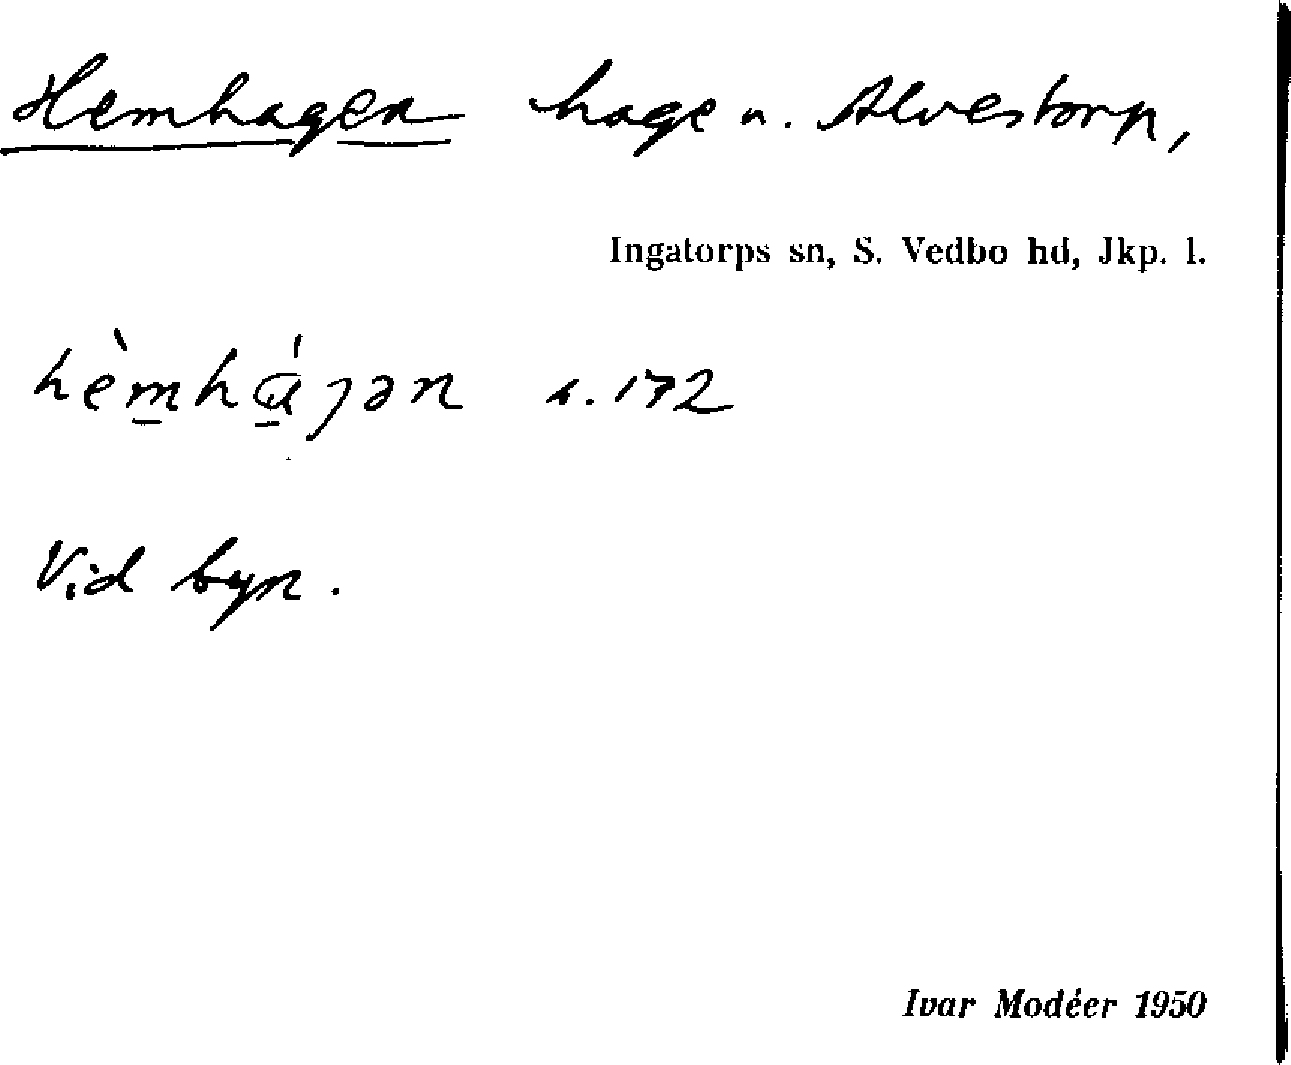 Hemhagen hage u. Alvestorp,
Ingatorps sn, S. Vedbo hd, Jkp. l.
hèmhájən s. 172
Vid byn.
Ivar Modéer 1950